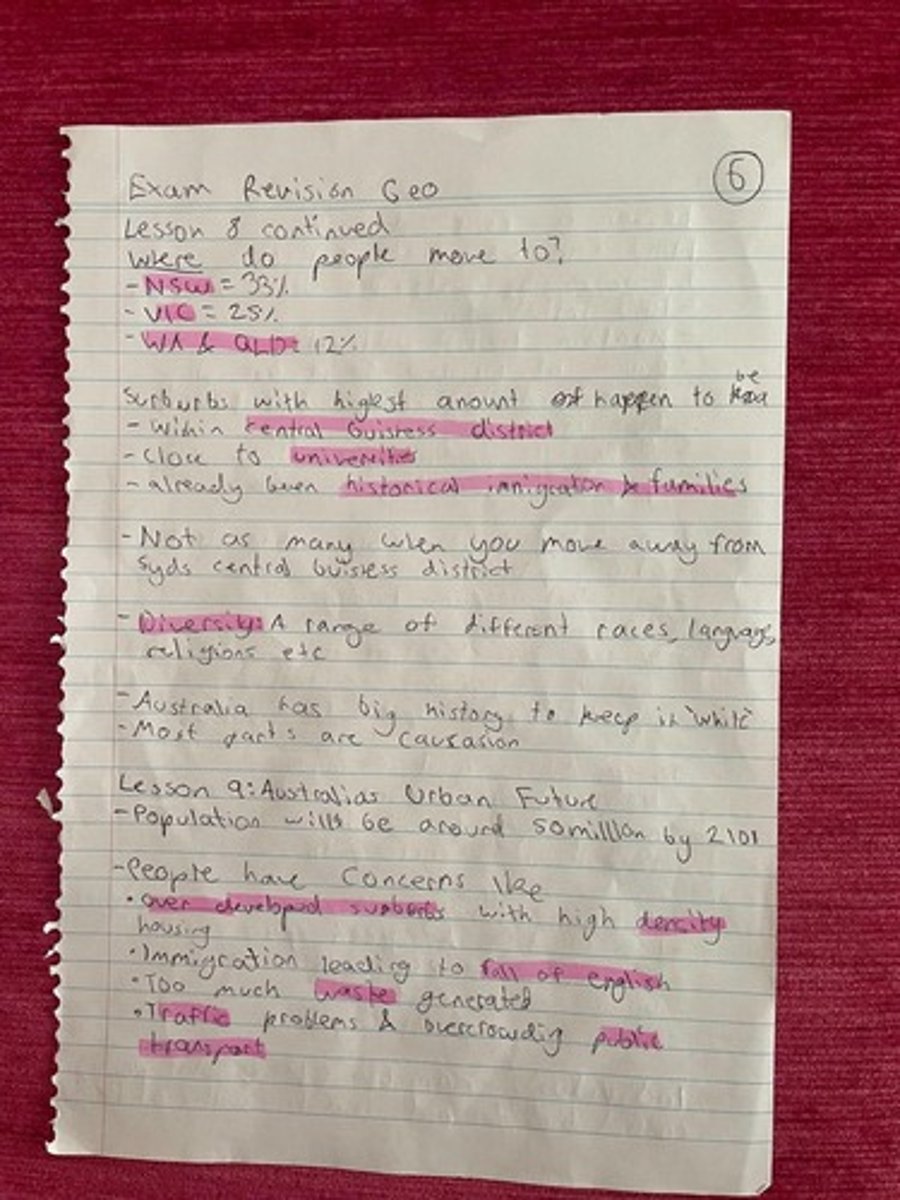 6
Exam Revision Geo
Lesson 8 continued
Where do people move to?
- NSW = 33%
- VIC = 25%
- WA & QLD = 12%
Surburbs with highest amount of happen to be
- Within central buisness district
- Close to universities
- already been historical immigration & families
- Not as many when you move away from
Syds central buisness district
- Diversity: A range of different races, language,
religions etc
- Australia has big history to keep it "white"
- Most parts are causasion
Lesson 9: Australias Urban Future
- Population will be around 50 million by 2101
- People have concerns like
• over developed with high dencity
housing
• Immigration leading to fall of english
• Too much waste generated
• Traffic problems & overcrowdig public
transport